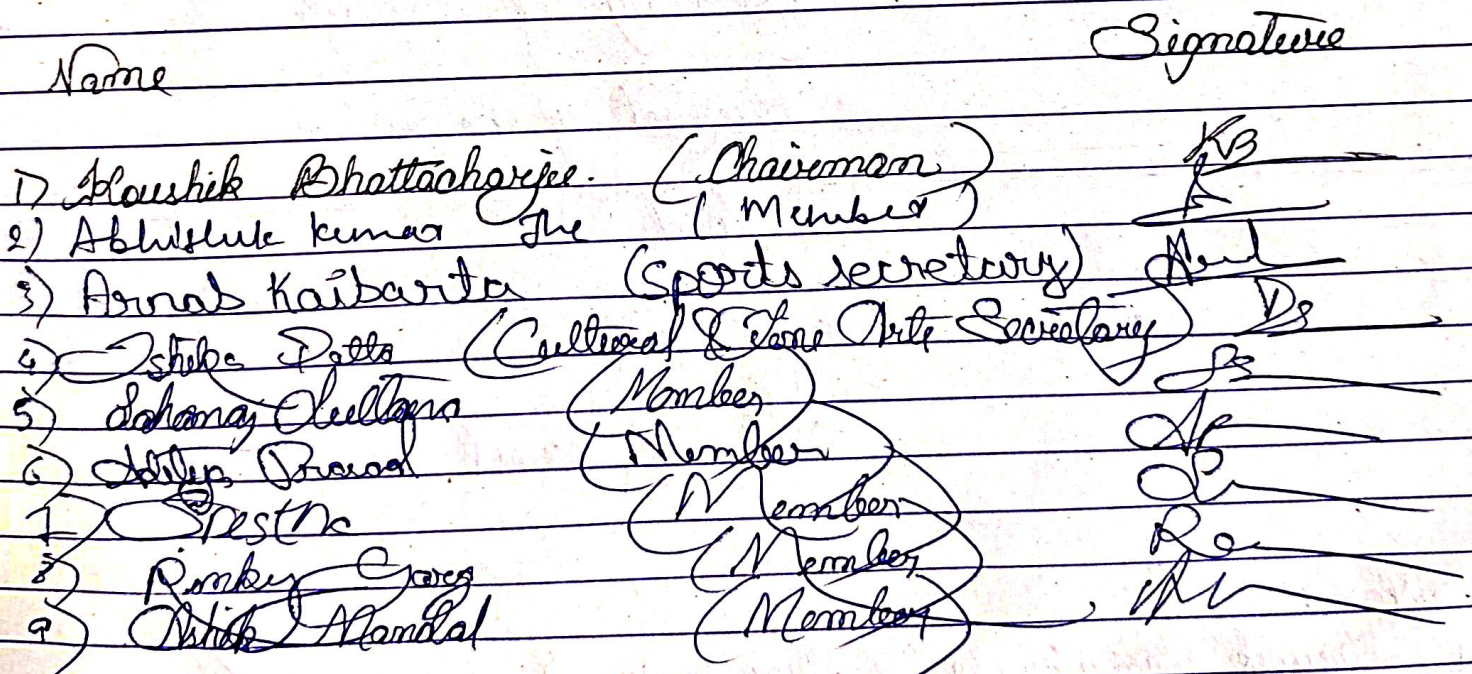 Name Signature
1) Koushik Bhattacharjee. (Chairman) KB
2) Abhishek kumar Jha (Member)
3) Arnab Kaibarta (Sports secretary)
4) Ishika Datta (Cultural & Fine Arts Secretary) Ds
5) Sultana (Member)
6) Aditya Prasad (Member)
7) (Member)
8) Rinky Garg (Member)
9) Ashok Mandal (Member)